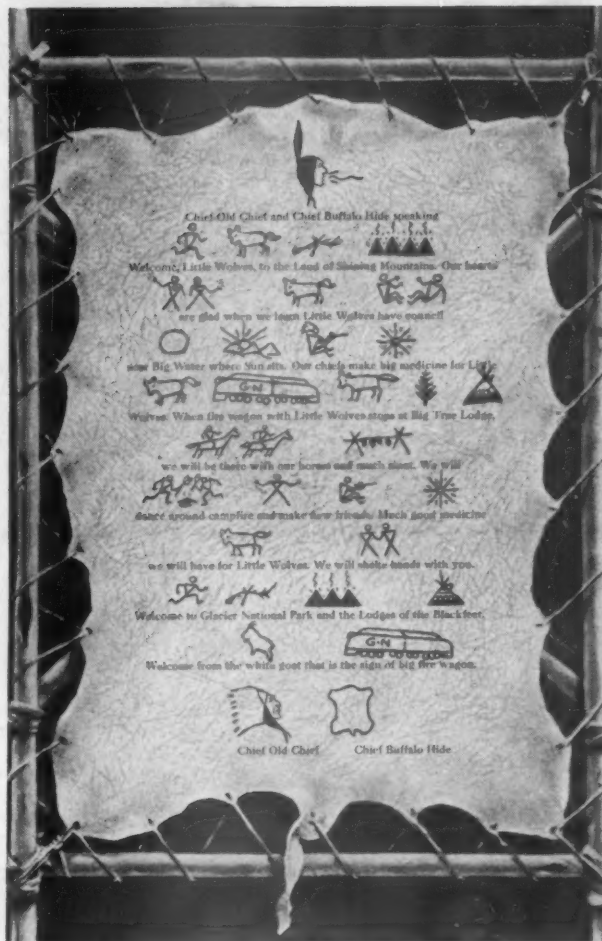 Chief Old Chief and Chief Buffalo Hide speaking
Welcome, Little Wolves, to the Land of Shining Mountains. Our hearts
are glad when we learn Little Wolves have council
near Big Water where Sun sits. Our chiefs make big medicine for Little
G-N
Wolves. When fire wagon with Little Wolves stops at Big Tree Lodge,
we will be there with our horses and much meat. We will
dance around campfire and make new friends. Much good medicine
we will have for Little Wolves. We will shake hands with you.
Welcome to Glacier National Park and the Lodges of the Blackfeet.
G-N
Welcome from the white goat that is the sign of big fire wagon.
Chief Old Chief Chief Buffalo Hide